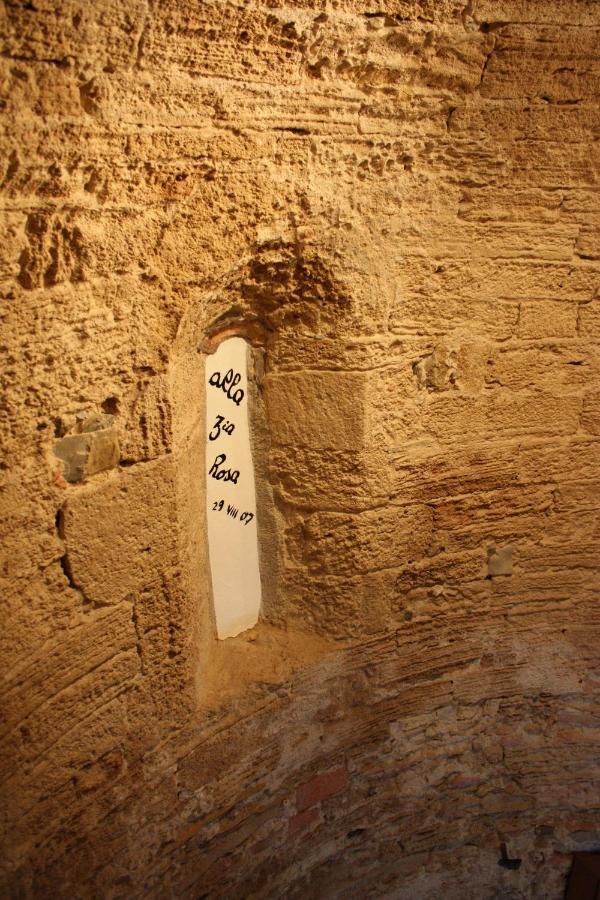 alla
Zia
Rosa
29 VIII 07